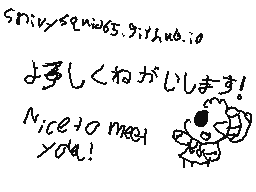 snivysquid65.github.io
よろしくねがいします!
Nice to meet
you!